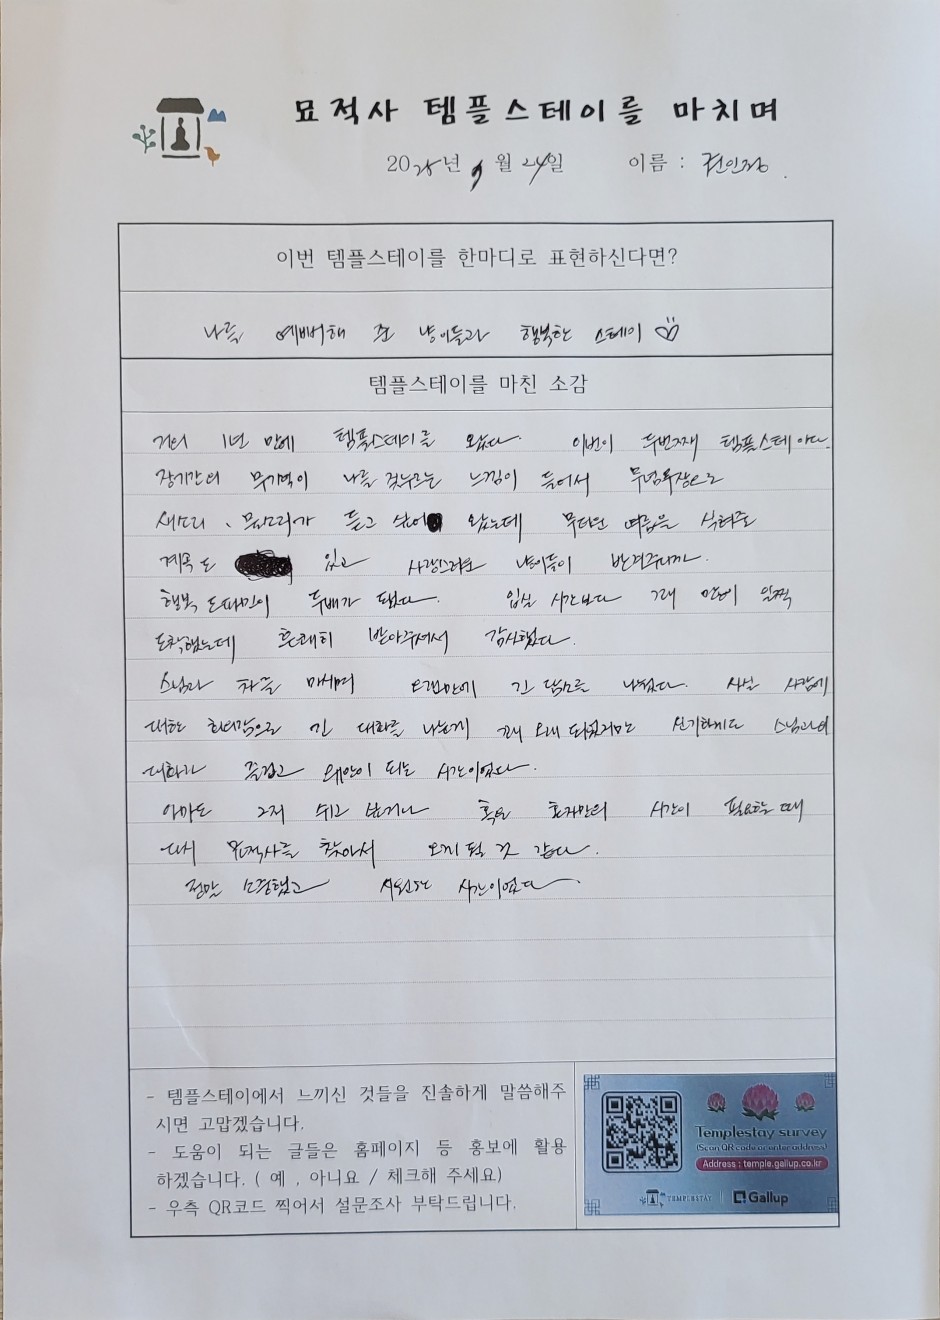 묘적사 템플스테이를 마치며
2025년 월 24일 이름 : 전인장
이번 템플스테이를 한마디로 표현하신다면?
나를 예뻐해 준 냥이들과 행복한 스테이
템플스테이를 마친 소감
거의 1년 만에 템플스테이를 왔다. 이번이 두번째 템플스테이다.
장기간의 무기력이 나를 짓누르는 느낌이 들어서 무념무장으로
새소리, 물소리가 듣고 싶어 왔는데 무더운 여름을 식혀줄
계곡도 있고 사랑스러운 냥이들이 반겨주니까.
행복 도파민이 두배가 됐다. 입실 시간보다 그래 많이 일찍
도착했는데 흔쾌히 받아주셔서 감사했다.
스님과 차를 마시며 오랜만에 긴 담소를 나눴다. 사실 사람에
대한 회의감으로 긴 대화를 나눈게 꽤 오래 되었지만 신기하게도 스님과의
대화가 즐겁고 위안이 되는 시간이었다.
아마도 그저 쉬고 싶거나 혹은 혼자만의 시간이 필요할 때
다시 묘적사를 찾아서 오게 될 것 같다.
정말 소중했고 시간이었다.
- 템플스테이에서 느끼신 것들을 진솔하게 말씀해주
시면 고맙겠습니다.
- 도움이 되는 글들은 홈페이지 등 홍보에 활용
하겠습니다. ( 예 , 아니요 / 체크해 주세요)
- 우측 QR코드 찍어서 설문조사 부탁드립니다.
Templestay survey
(Scan QR code or enter address)
Address : temple.gallup.co.kr
TEMPLESTAY Gallup